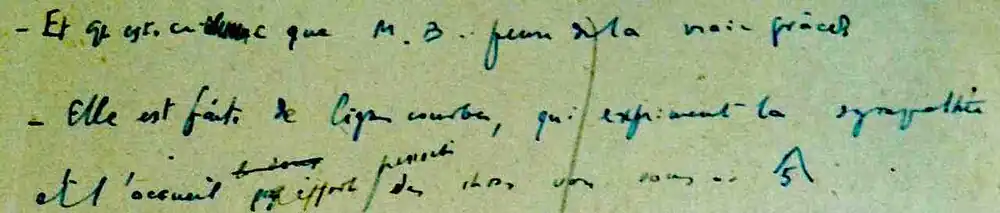 - Et qu'est-ce donc que M. B. pense de la vraie grâce?
- Elle est faite de lignes courbes, qui expriment la sympathie
et l'accueil effort des choses vers nous